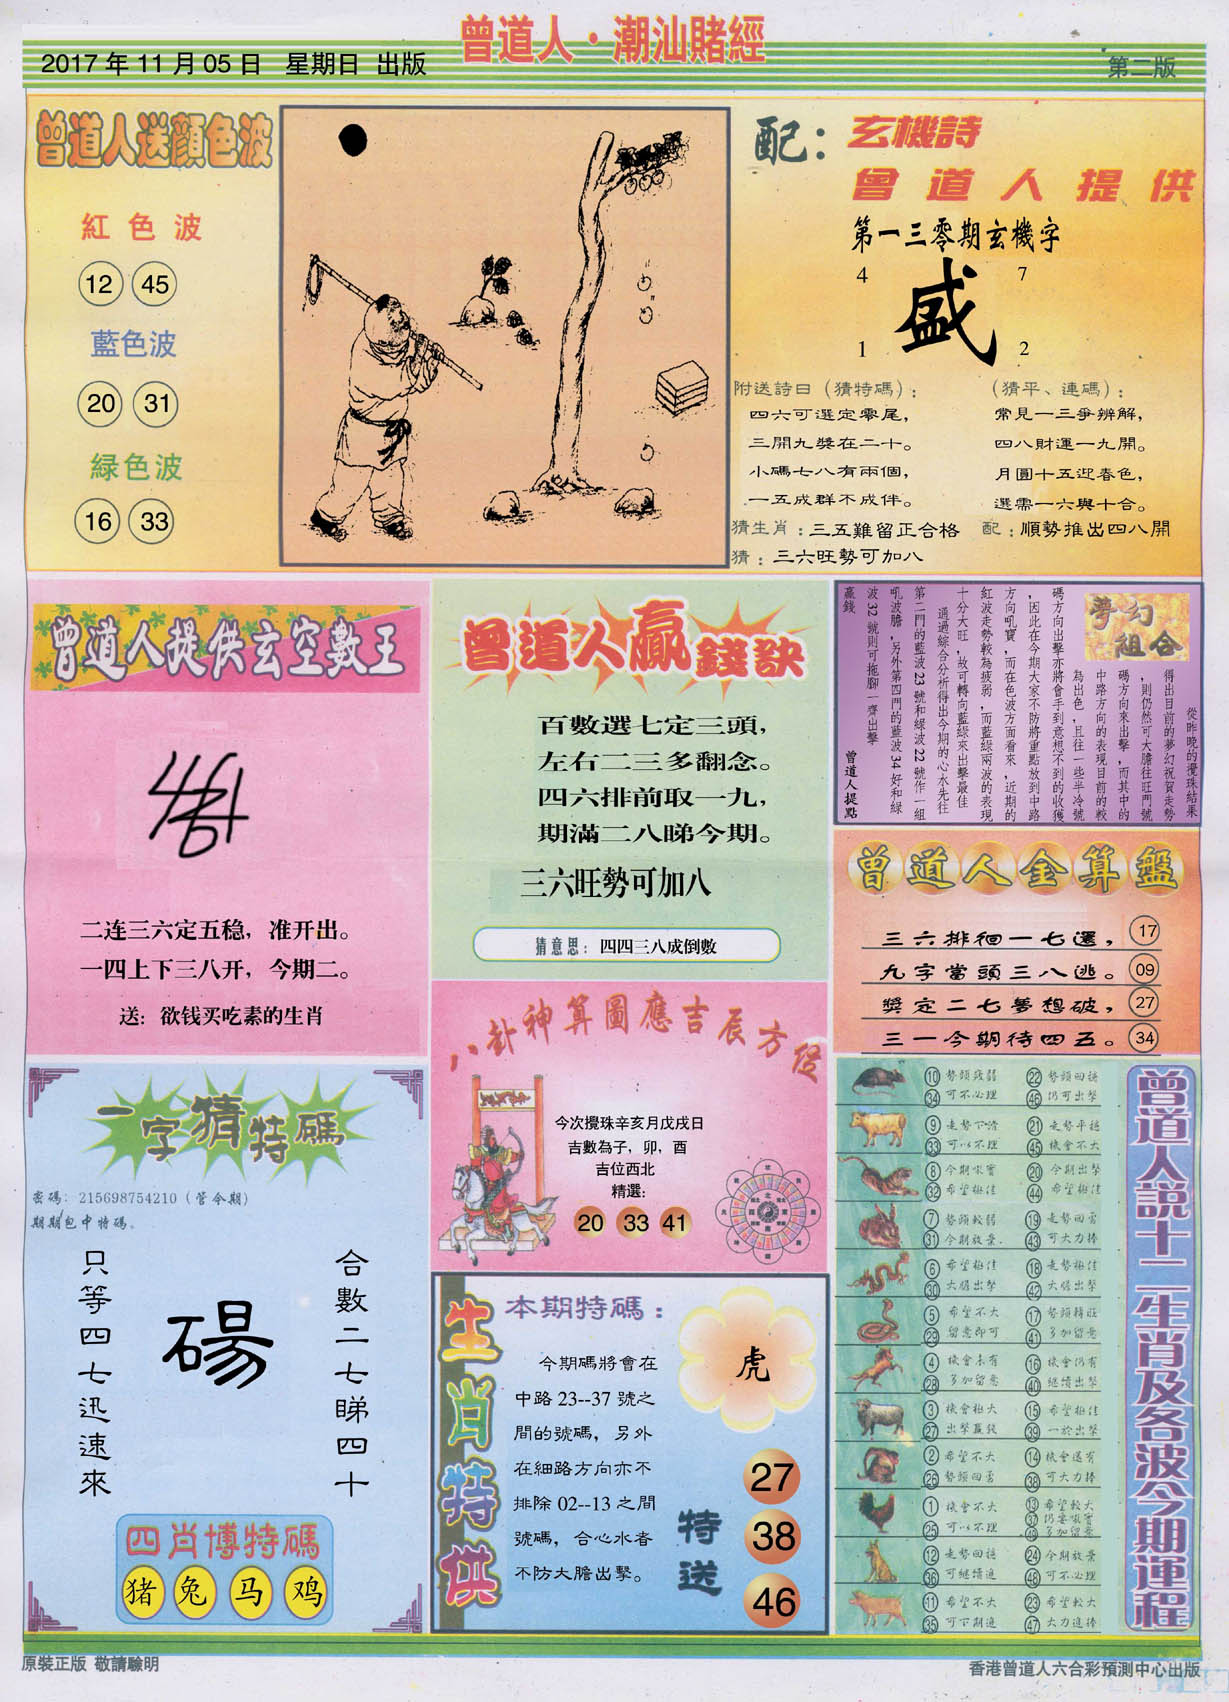 曾道人·潮汕賭經
2017年11月05日 星期日 出版
第二版
曾道人送顏色波
紅色波
12 45
藍色波
20 31
緑色波
16 33
配：
玄機詩
曾道人提供
第一三零期玄機字
4 7
盛
1 2
附送詩曰（猜特碼）：
四六可選定零尾，
三開九獎在二十。
小碼七八有兩個，
一五成群不成伴。
（猜平、連碼）：
常見一三爭辨解，
四八財運一九開。
月圓十五迎春色，
選需一六與十合。
猜生肖：三五難留正合格
配：順勢推出四八開
猜：三六旺勢可加八
曾道人提供玄空數王
二连三六定五稳，准开出。
一四上下三八开，今期二。
送：欲钱买吃素的生肖
曾道人贏錢訣
百數選七定三頭，
左右二三多翻念。
四六排前取一九，
期滿二八睇今期。
三六旺勢可加八
猜意思：四四三八成倒數
夢幻組合
從昨晚的攪珠結果
得出目前的夢幻祝賀走勢
，則仍然可大膽往旺門號
碼方向來出擊，而其中的
中路方向的表現目前的較
為出色，且往一些半冷號
碼方向出擊亦將會手到意想不到的收獲
，因此在今期大家不防將重點放到中路
方向吼寶，而在色波方面看來，近期的
紅波走勢較為疲弱，而藍綠兩波的表現
十分大旺，故可轉向藍綠來出擊最佳
通過綜合分析得出今期的心水先往
第二門的藍波23號和綠波22號作一組
吼波膽，另外第四門的藍波34好和綠
波32號則可拖腳一齊出擊
贏錢
曾道人提點
曾道人金算盤
三六排徊一七選， 17
九字當頭三八逃。 09
獎定二七夢想破， 27
三一今期待四五。 34
八卦神算圖應吉辰方位
今次攪珠辛亥月戊戌日
吉數為子，卯，酉
吉位西北
精選：
20 33 41
一字猜特碼
密碼：215698754210（管令期）
期期包中特碼。
合數二七睇四十
碭
只等四七迅速來
四肖博特碼
猪 兔 马 鸡
生肖特供
本期特碼：
今期碼將會在
中路23--37號之
間的號碼，另外
在細路方向亦不
排除02--13之間
號碼，合心水者
不防大膽出擊。
虎
特送
27
38
46
曾道人説十二生肖及各波今期運程
10 34 勢頭殘弱 可不必理
22 46 勢頭回穩 仍可出擊
9 33 走勢下滑 可以不理
21 45 走勢平穩 機會不大
8 32 今期吼寶 希望極佳
20 44 今期出擊 希望極佳
7 31 勢頭較弱 今期放棄
19 43 走勢回勇 可大力捧
6 30 希望極佳 大膽出擊
18 42 走勢極佳 大膽出擊
5 29 希望不大 留意即可
17 41 勢頭轉旺 多加留意
4 28 機會未有 多加留意
16 40 機會仍有 継續出擊
3 27 機會極大 出擊贏錢
15 39 希望極佳 一於出擊
2 26 希望不大 勢頭回勇
14 38 機會還有 可大力捧
1 25 機會不大 可以不理
13 37 49 希望較大 仍要吼寶 多加留意
12 36 走勢回穩 可継續追
24 48 今期放棄 可不必理
11 35 希望不大 可下期追
23 47 希望較大 大力追捧
原裝正版 敬請驗明
香港曾道人六合彩預測中心出版